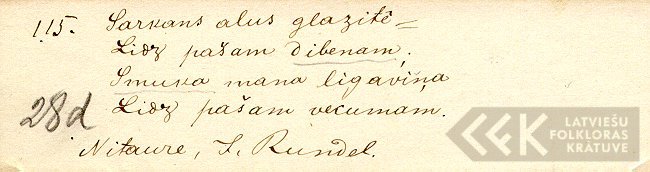 115. Sarkans alus glazitē
Lidz pašam dibenam,
Smuka mana ligaviņa
Lidz pašam vecumam.
28d
Nitaure, J. Rundel.
LATVIEŠU
FOLKLORAS
KRĀTUVE